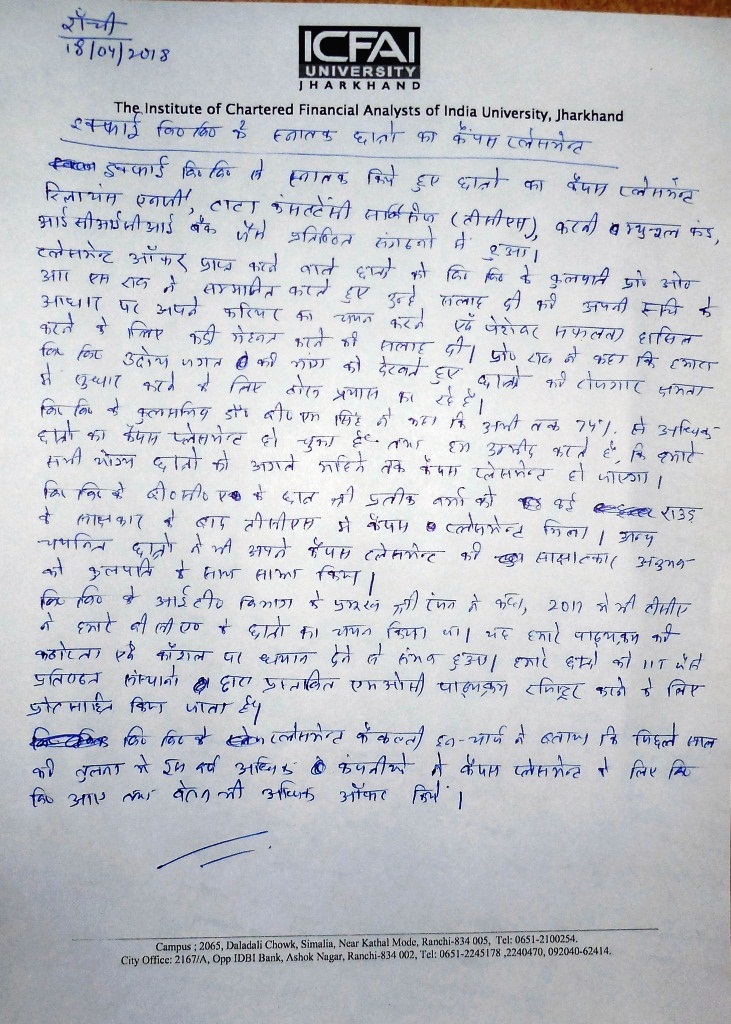 राँची
18/04/2018
ICFAI
UNIVERSITY
JHARKHAND
The Institute of Chartered Financial Analysts of India University, Jharkhand
इक्फाई वि० वि० के स्नातक छात्रों का कैंपस प्लेसमेंट
इक्फाई वि० वि० से स्नातक किये हुए छात्रों का कैंपस प्लेसमेंट
रिलायंस एनर्जी, टाटा कंसल्टेंसी सर्विसेज (टीसीएस), म्युचुअल फंड,
आईसीआईसीआई बैंक जैसे प्रतिष्ठित संगठनों में हुआ।
प्लेसमेंट ऑफर प्राप्त करने वाले छात्रों को वि० वि० के कुलपति प्रो० ओ०
आर एस राव ने सम्मानित करते हुए उन्हें सलाह दी की अपनी रूचि के
आधार पर अपने करियर का चयन करने एवं पेशेवर सफलता हासिल
करने के लिए कड़ी मेहनत करने की सलाह दी। प्रो० राव ने कहा कि हमारा
वि० वि० उद्योग जगत की मांग को देखते हुए छात्रों की रोजगार क्षमता
में सुधार करने के लिए ठोस प्रयास कर रहे है।
वि० वि० के कुलसचिव डॉ० बी० एम सिंह ने कहा कि अभी तक 75% से अधिक
छात्रों का कैंपस प्लेसमेंट हो चुका है तथा हम उम्मीद करते है, कि हमारे
सभी योग्य छात्रों को अगले महिने तक कैंपस प्लेसमेंट हो जाएगा।
वि० वि० के बी० सी० ए० के छात्र श्री प्रतीक वर्मा को कई राउंड
के साक्षकार के बाद टीसीएस में कैंपस प्लेसमेंट मिला। अन्य
चयनित छात्रों ने भी अपने कैंपस प्लेसमेंट की साक्षात्कार अनुभव
को कुलपति के साथ साझा किया।
वि० वि० के आई टी० विभाग के श्री रंजन ने कहा, 2017 में भी टीसीए
ने हमारे बी सी ए० के छात्रों का चयन किया था। यह हमारे पाठ्यक्रम की
कठोरता एवं कौशल पर ध्यान देने से संभव हुआ। हमारे छात्रों को IIT जैसे
प्रतिष्ठत संस्थानों द्वारा प्रस्तावित एमओसी पाठ्यक्रम रजिस्टर करने के लिए
प्रोत्साहित किया जाता है।
वि० वि० के प्लेसमेंट फैकल्टी इन-चार्ज ने बताया कि पिछले साल
की तुलना में इस वर्ष अधिक कंपनीयों ने कैंपस प्लेसमेंट के लिए वि०
वि० आए तथा वेतन भी अधिक ऑफर किये।
Campus : 2065, Daladali Chowk, Simalia, Near Kathal Mode, Ranchi-834 005, Tel: 0651-2100254.
City Office: 2167/A, Opp IDBI Bank, Ashok Nagar, Ranchi-834 002, Tel: 0651-2245178 ,2240470, 092040-62414.